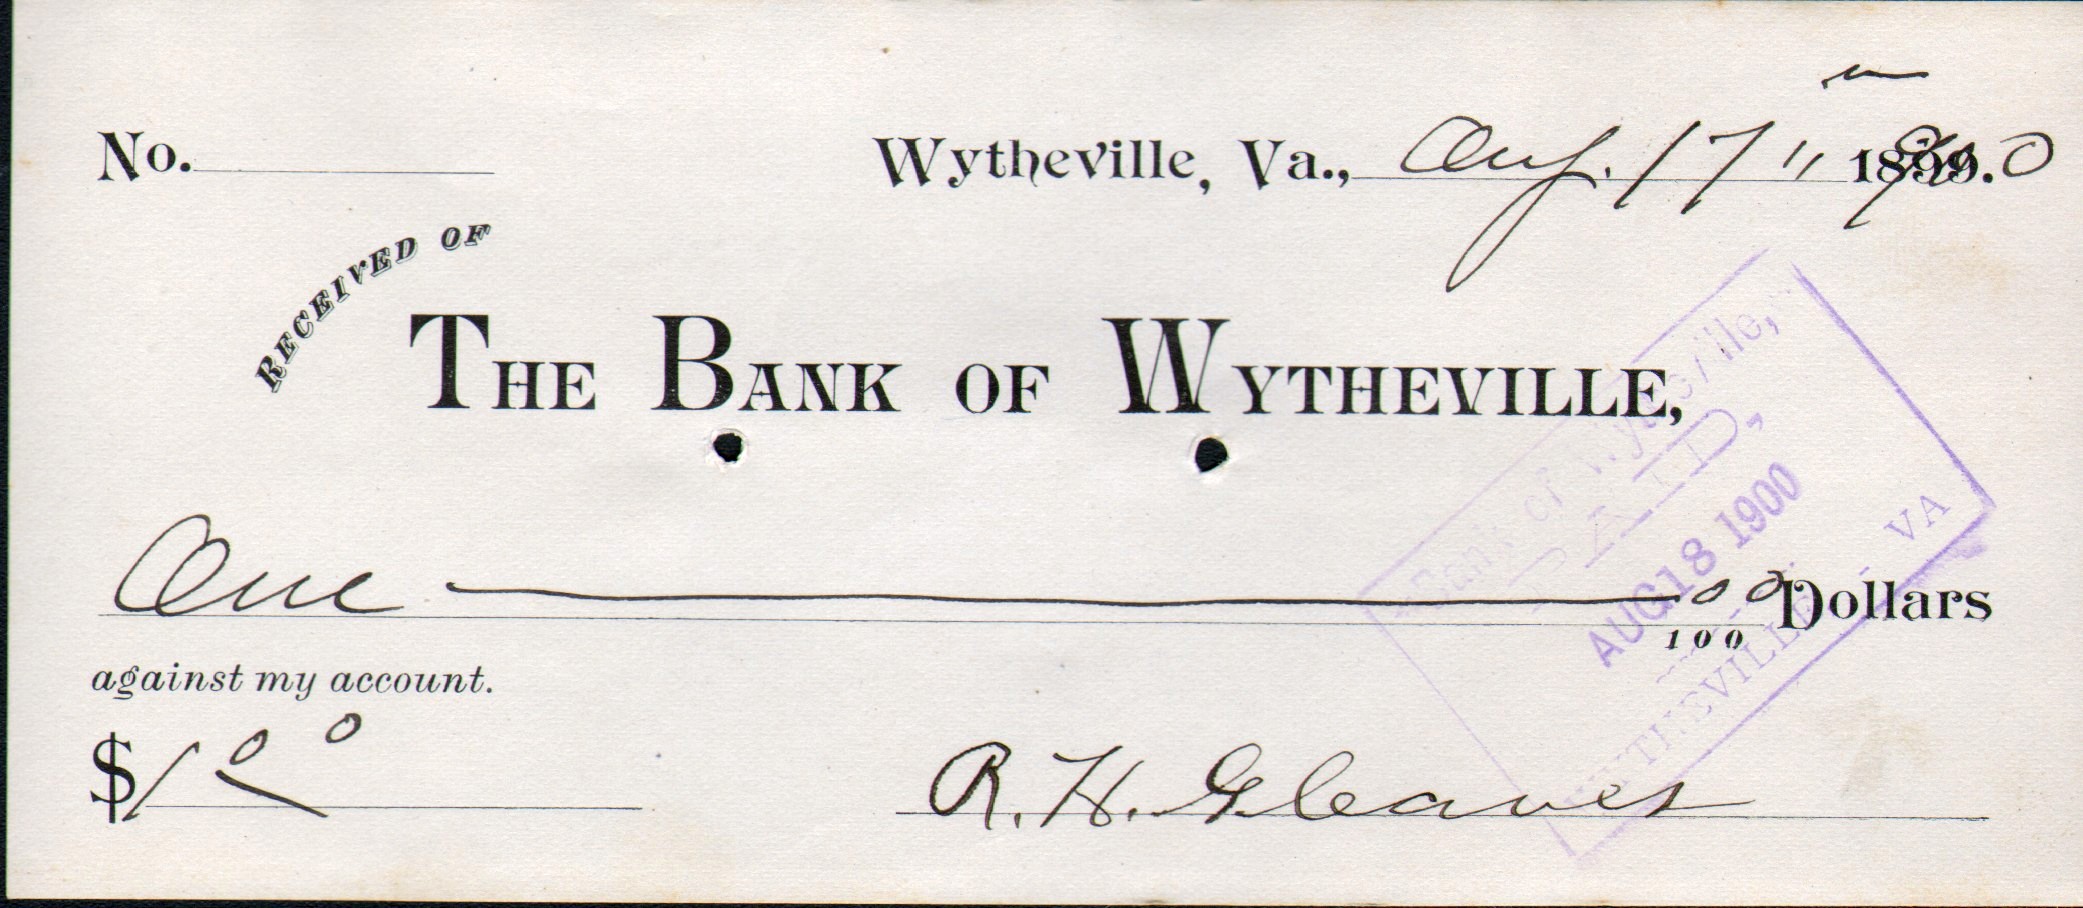 No.
Wytheville, Va., Aug. 17 " 1899.0
RECEIVED OF
THE BANK OF WYTHEVILLE,
One 00/100 Dollars
against my account.
$1 00
R. H. Gleaves
Bank of Wytheville,
PAID,
AUG 18 1900
WYTHEVILLE, VA